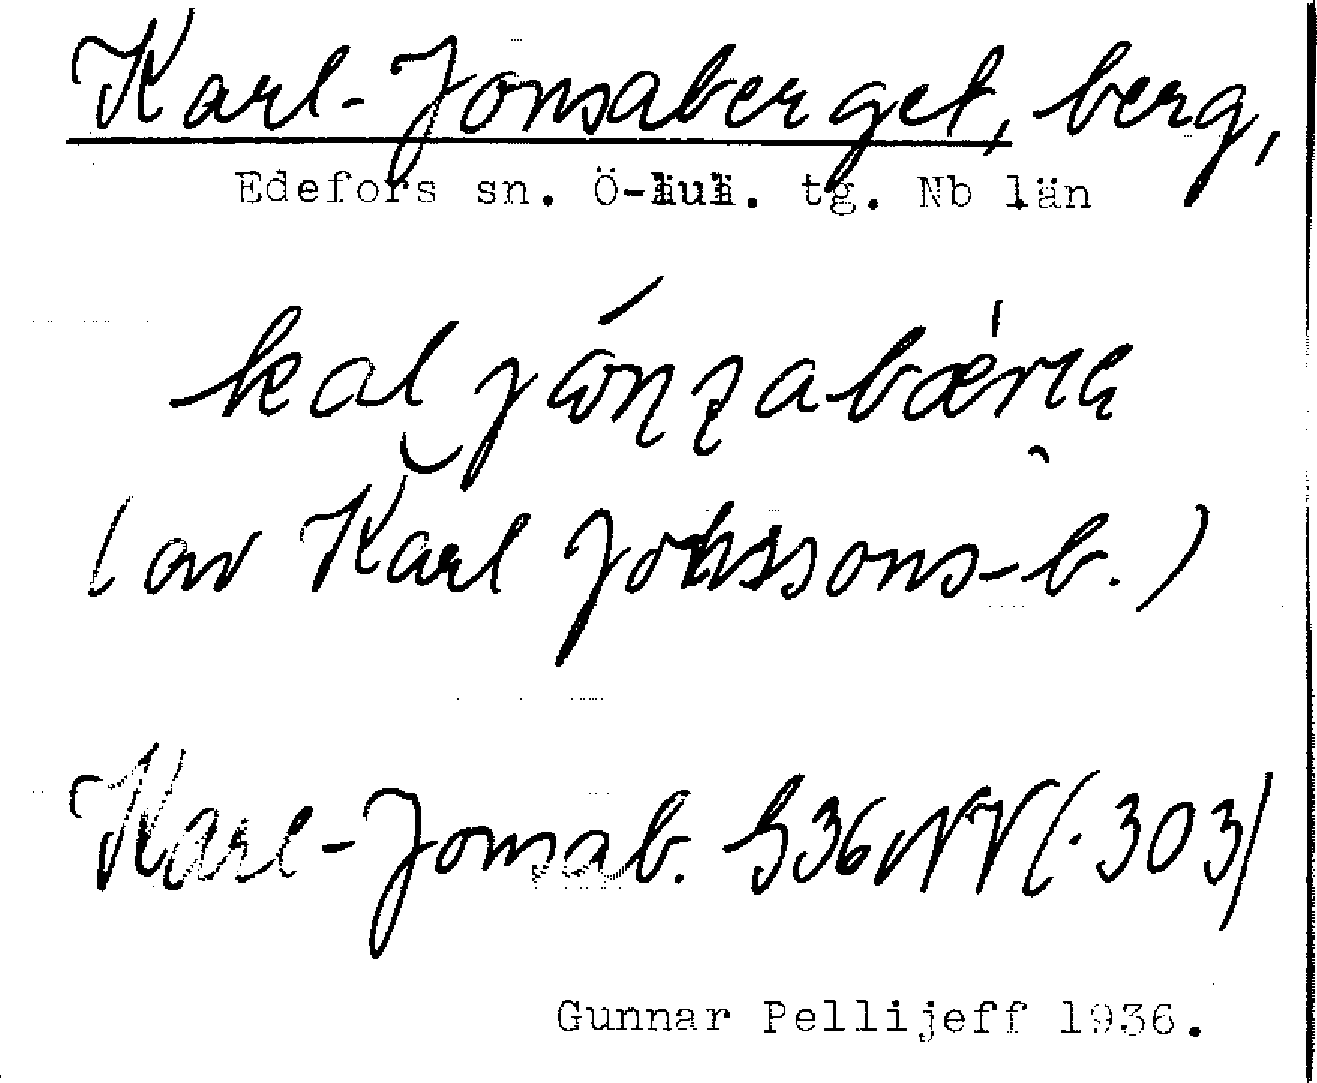 Karl-Jonsaberget, berg,
Edefors sn. Ö-luk. tg. Nb län
kal
(av Karl Jonssons-b.)
Karl-Jonsab. G36NV (·303)
Gunnar Pellijeff 1936.